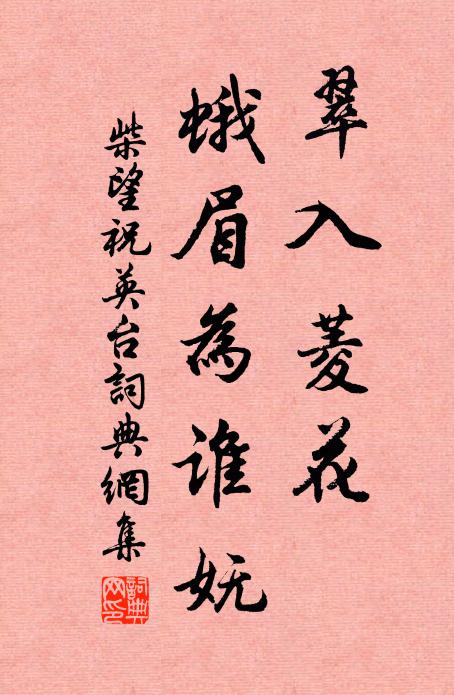 翠入菱花
蛾眉為誰妩
柴望祝英台詞典網集
詞典网印